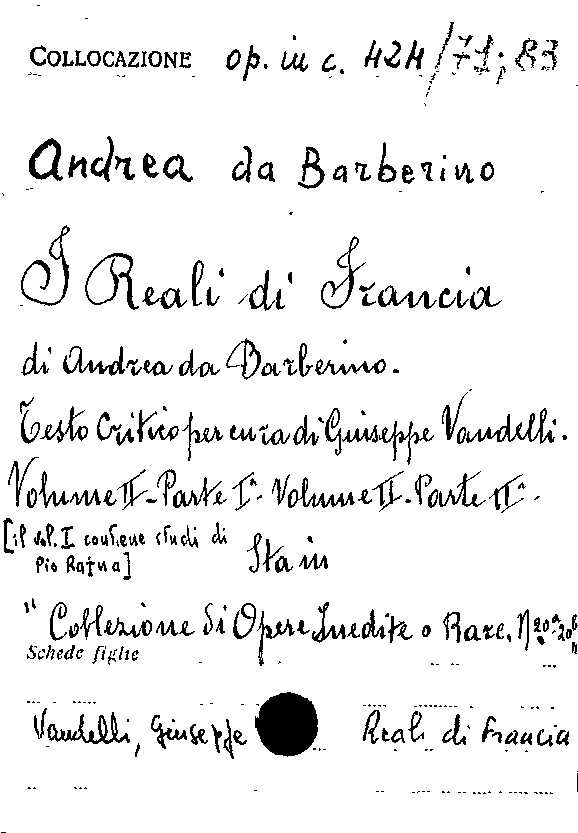 COLLOCAZIONE op. in c. 424/71; 83
Andrea da Barberino
I Reali di Francia
di Andrea da Barberino.
Testo Critico per cura di Giuseppe Vandelli.
Volume II - Parte Iª. Volume II. Parte IIª.
[il vol. I contiene studi di
Pio Rajna] Sta in
"Collezione di Opere Inedite o Rare. N 20ª-20b"
Schede figlie
Vandelli, Giuseppe Reali di Francia